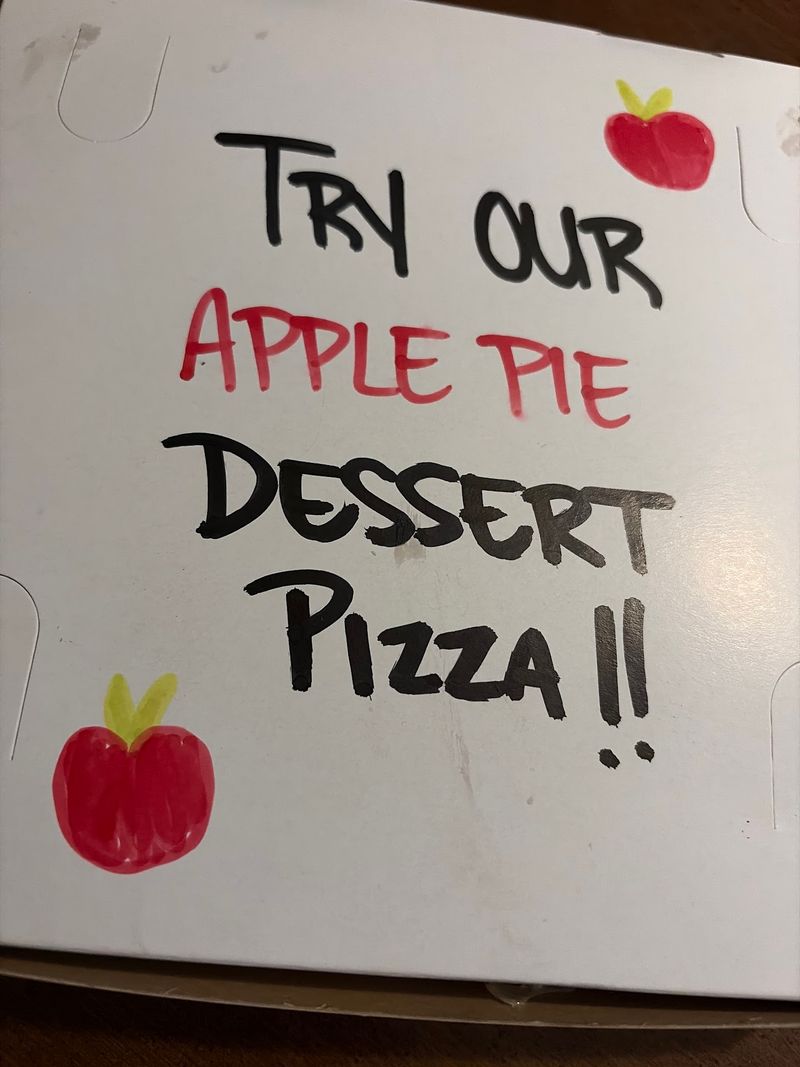 TRY OUR
APPLE PIE
DESSERT
PIZZA!!